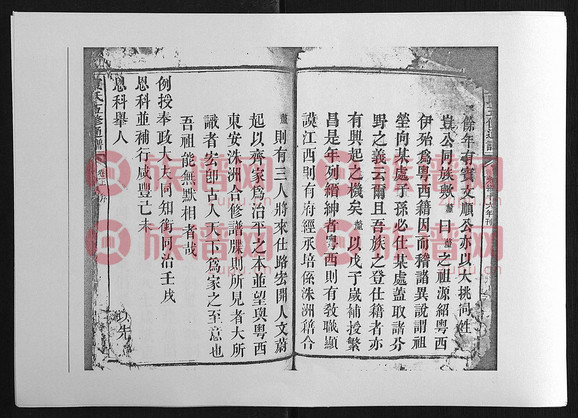 餘年有實文順公亦以大挑同姓
豈公同族歟鼇曰鼇之祖源紹粵西
伊始爲粵西籍因而稽諸異說謂祖
塋向某處子孫必仕某處蓋取諸分
野之義云爾且吾族之登仕籍者亦
有興起之機矣鼇以戊于歲補授繁
昌是年列縉紳者粵西則有敎職顯
謨江西則有府經承培係洙洲籍合
鼇則有三人將來仕路宏開人文蔚
起以齊家爲治平之本並望與粵西
東安洙洲合修譜牒則所見者大所
識者宏卽古人天下爲家之至意也
吾祖能無默相者哉
例授奉政大夫同知銜同治壬戌
恩科並補行咸豐己未
恩科舉人
氏五修通譜
卷二
序
族譜网
族譜网
族譜网
族譜网